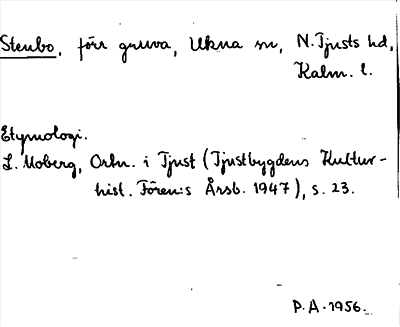 Stenbo, förr gruva, Ukna sn, N. Tjusts hd,
Kalm. l.
Etymologi.
L. Moberg, Ortn. i Tjust (Tjustbygdens Kultur-
hist. Fören:s Årsb. 1947), s. 23.
P.A. 1956.